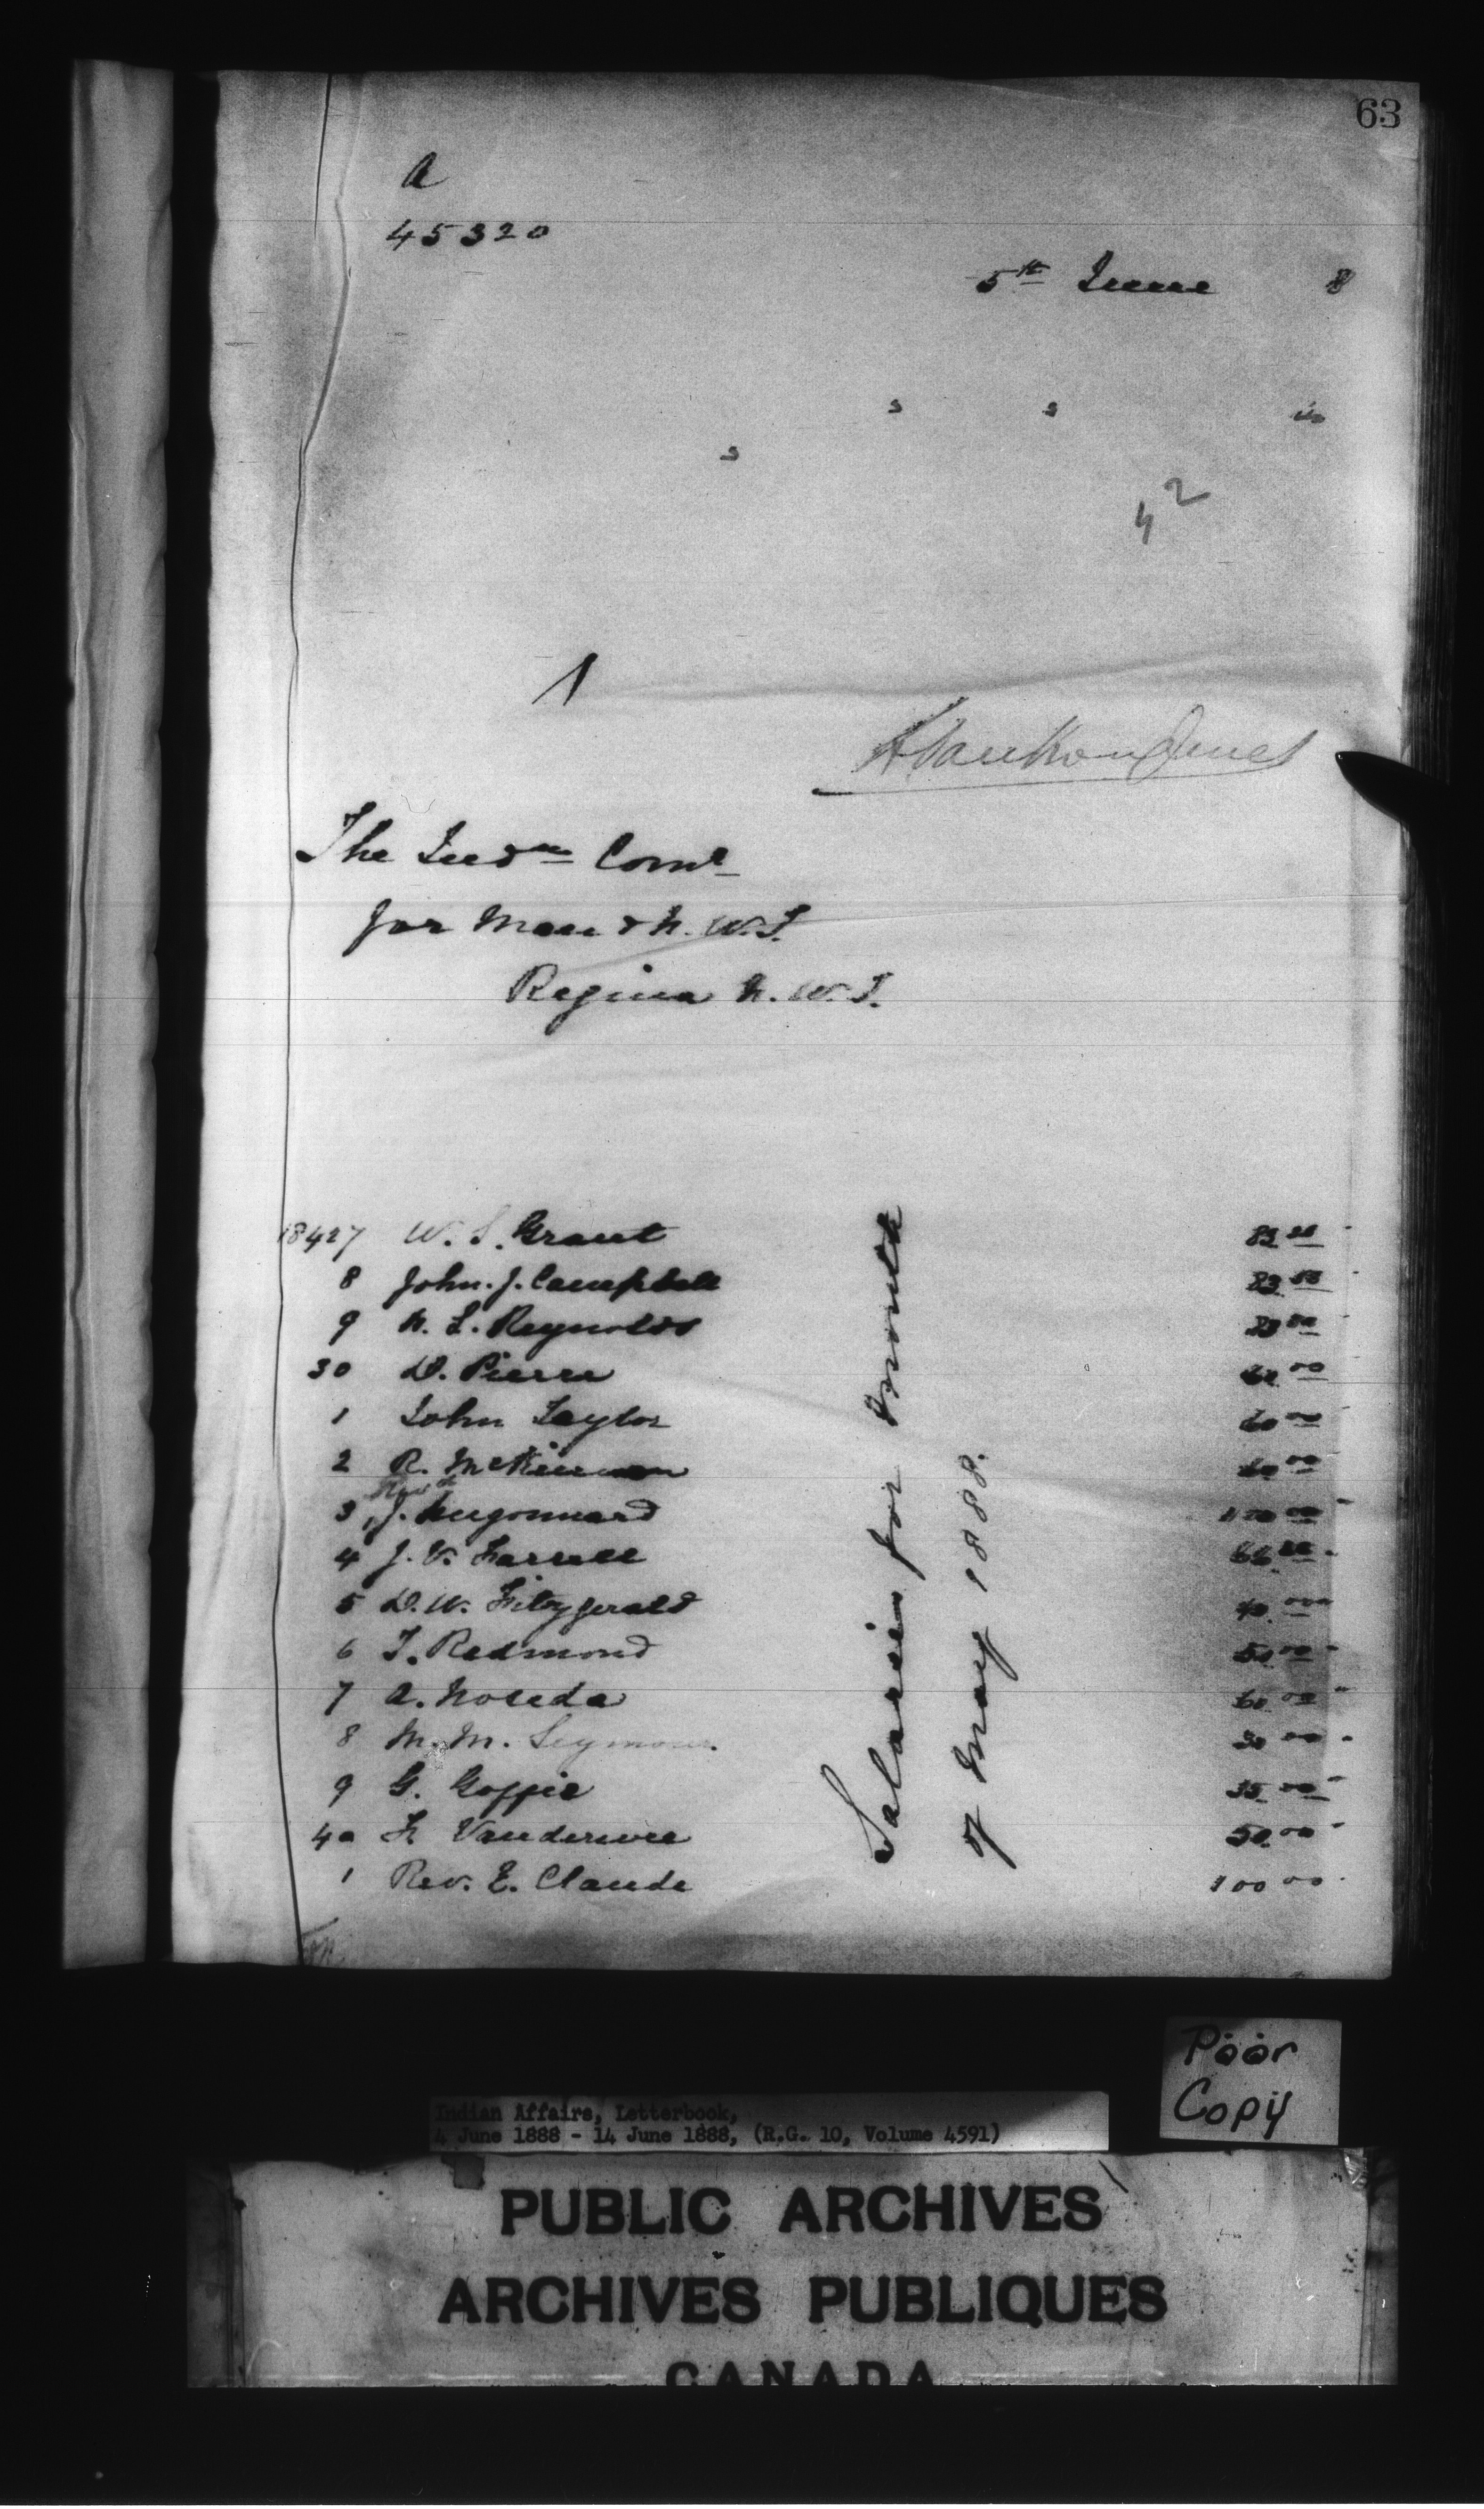 63
a
45320
5th June 8
s s
s
42
1
The Indn Comr
for Man & N.W.T.
Regina N.W.T.
18427 W. S. Grant
8 John. J. Campbell
9 N. L. Reynolds 00
30 D. Pierre 00
1 John Taylor 60 00
2 R. McKinnon 60 00
3 Revd J. Hugonnard 100 00
4 J. V. Farrell 66
5 D. W. Fitzgerald 40 00
6 T. Redmond 50 00
7 A. Noleda 60 00
8 M. M. Seymour 30 00
9 G. Goppie 35 00
40 Vanderwee 50 00
1 Rev. E. Claude 100 00
Salaries for month
of May 1888.
Poor
Copy
Indian Affairs, Letterbook,
4 June 1888 - 14 June 1888, (R.G. 10, Volume 4591)
PUBLIC ARCHIVES
ARCHIVES PUBLIQUES
CANADA